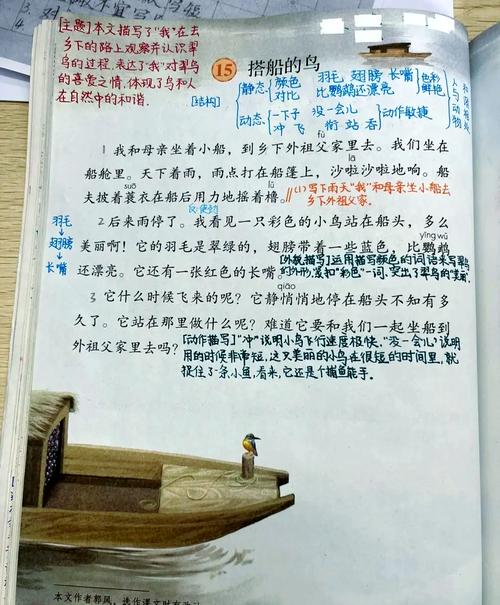 [主题]本文描写了“我”在去
乡下的路上观察并认识翠
鸟的过程,表达了“我”对翠鸟
的喜爱之情,体现了鸟和人
在自然中的和谐.
15 搭船的鸟
[结构]
静态 颜色 羽毛 翅膀 长嘴 色彩
对比 比鹦鹉还漂亮 鲜艳
动态 一下子 没一会儿 动作敏捷
冲 飞 衔 站 吞
人与动物
和谐相处
fù
1 我和母亲坐着小船,到乡下外祖父家里去。我们坐在
lā
船舱里。天下着雨,雨点打在船篷上,沙啦沙啦地响。船
suō lǔ
夫披着蓑衣在船后用力地摇着橹。
(1)写下雨天“我”和母亲坐小船去
乡下外祖父家。
羽毛
翅膀
长嘴
2 后来雨停了。我看见一只彩色的小鸟站在船头,多么
yīng wǔ
美丽啊!它的羽毛是翠绿的,翅膀带着一些蓝色,比鹦鹉
还漂亮。它还有一张红色的长嘴。
[外貌描写]运用描写颜色的词语来写翠鸟
的外形,紧扣“彩色”一词,突出了翠鸟的“美丽”.
qiāo
3 它什么时候飞来的呢?它静悄悄地停在船头不知有多
久了。它站在那里做什么呢?难道它要和我们一起坐船到
外祖父家里去吗?
[动作描写]“冲”说明小鸟飞行速度极快,“没一会儿”说明
用的时候非常短,这只美丽的小鸟在很短的时间里,就
捉住了一条小鱼,看来,它还是个捕鱼能手.
本文作者郭风,选作课文时有改动